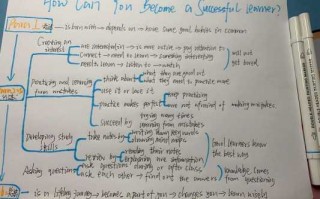 How Can You Become a Successful Learner?
is born with → depends on → have some good habits in common
Creating an interest
are interested in → is more active → pay attention to
need to learn → connect to → something interesting
need to learn → listen to → watch
will not get bored
Practicing and learning from mistakes
think about
what they are good at
what they need to practice more
use it or lose it
practice makes perfect
keep practicing
are not afraid of making mistakes
succeed by
trying many times
learning from mistakes
Developing study skills
take notes by
writing down key words
drawing mind maps
review by
reading their notes
explaining the information
look learners know the best way
Asking questions
ask questions during or after class
ask each other → find out the answers
knowledge comes from questioning
is a lifelong journey → become a part of you → changes you